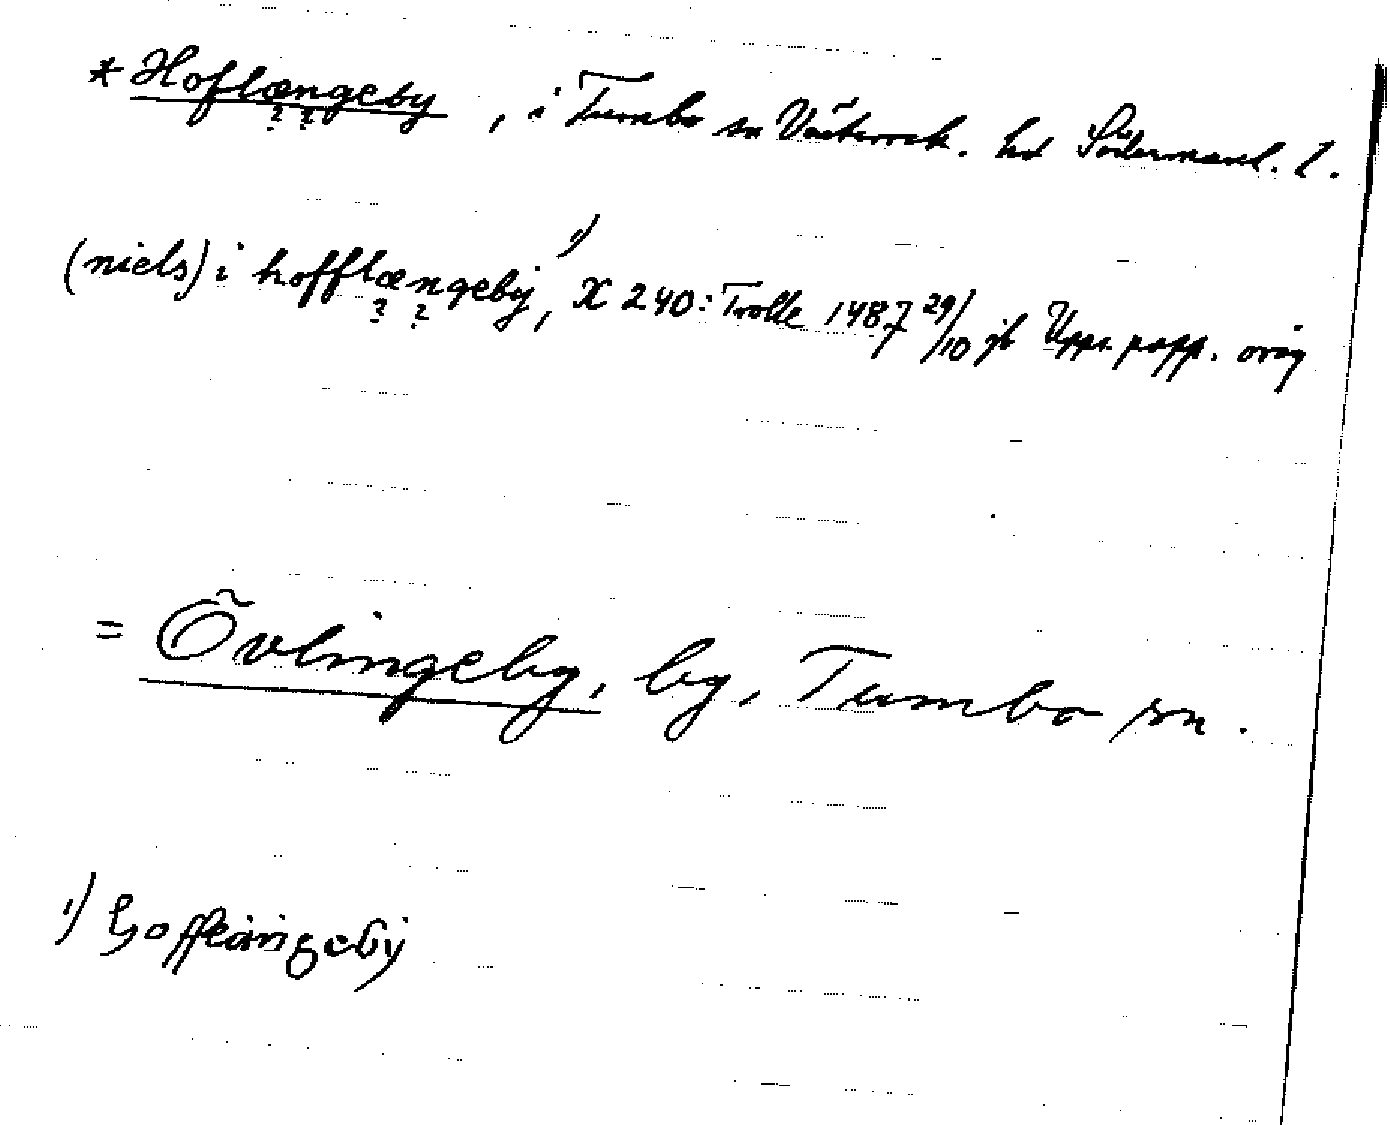 * Hoflængeby, i Tumbo sn Västerrek. hd Södermanl. l.
(niels) i hofflængebÿ, 1) X 240: Trolle 1487 29/10 jb Upps. papp. orig
= Õvlingeby, by, Tumbo sn.
1)